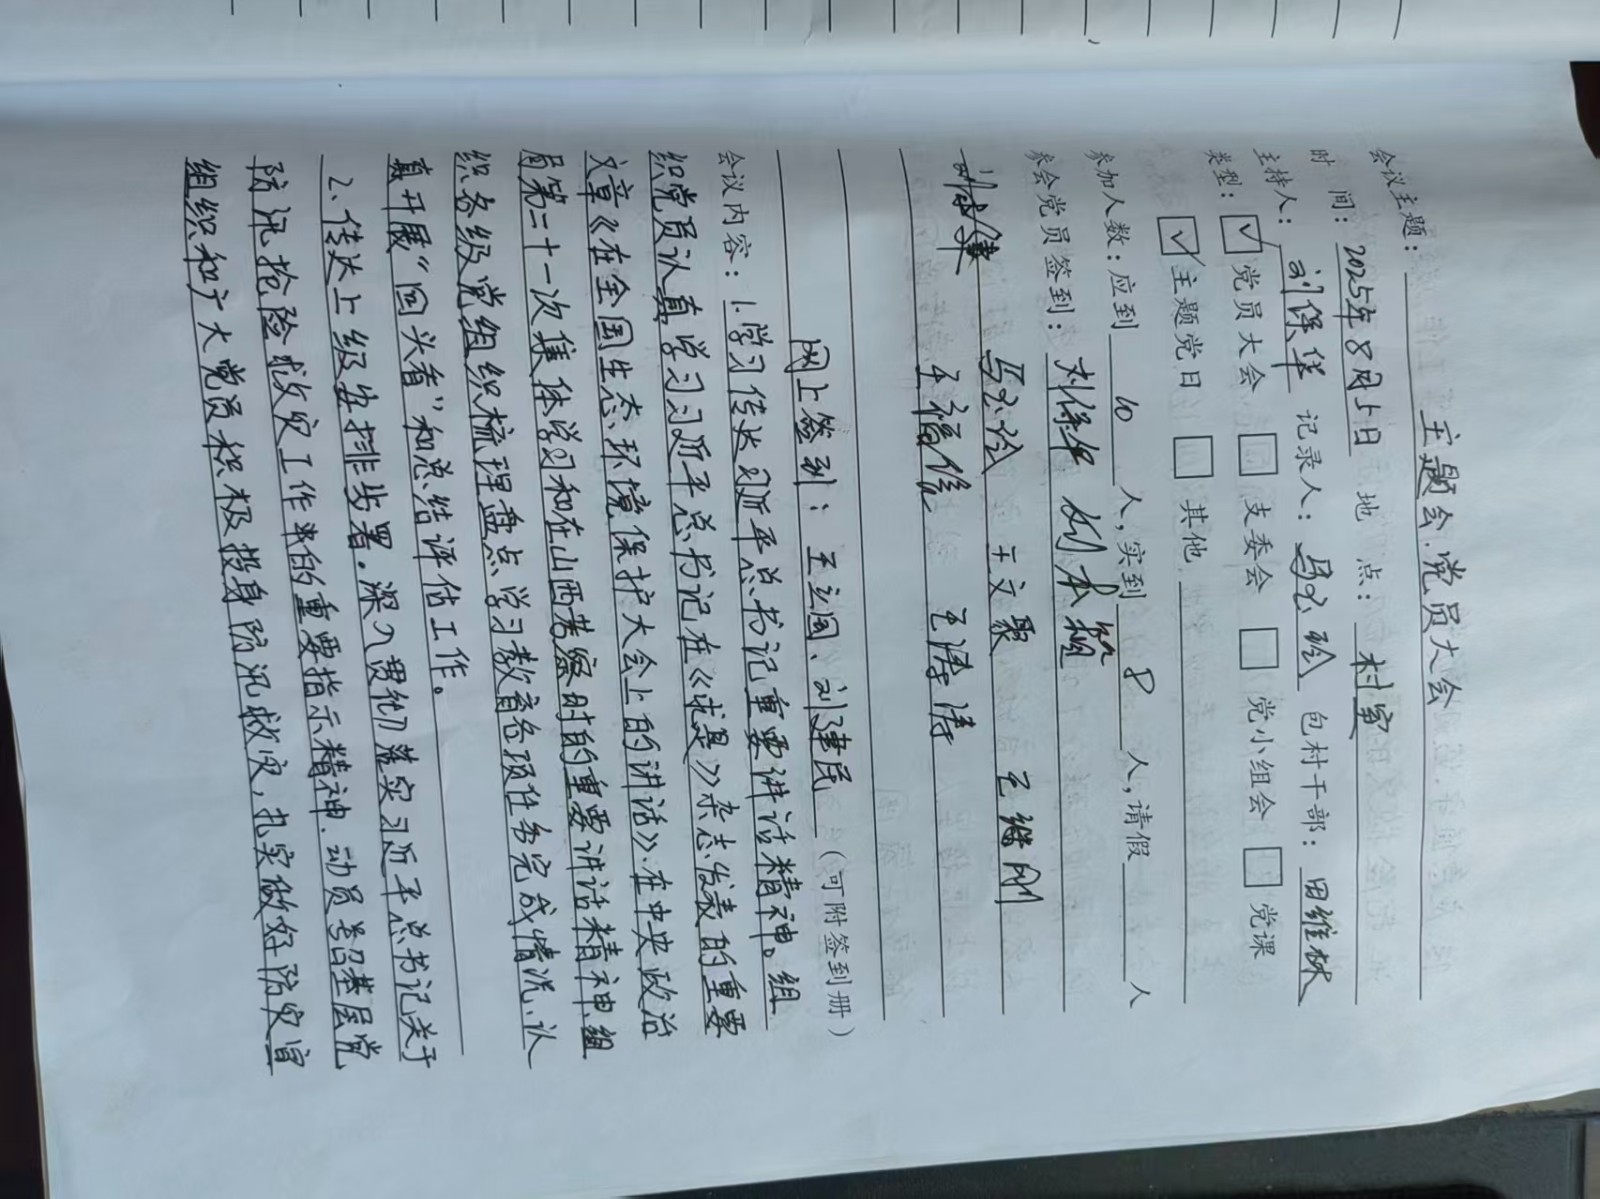 会议主题：主题会、党员大会
时 间：2025年8月5日 地 点：村室
主持人：刘保华 记录人： 包村干部：田维林
类型：☑党员大会 □支委会 □党小组会 □党课
☑主题党日 □其他
参加人数：应到 10 人，实到 8 人，请假 人
参会党员签到：刘保华
王文聚 王继刚
王福俊 王涛涛
网上签到：王立国、刘建民 （可附签到册）
会议内容：1.学习传达习近平总书记重要讲话精神。组
织党员认真学习习近平总书记在《求是》杂志发表的重要
文章《在全国生态环境保护大会上的讲话》、在中央政治
局第二十一次集体学习和在山西考察时的重要讲话精神、组
织各级党组织梳理盘点学习教育各项任务完成情况、认
真开展“回头看”和总结评估工作。
2、传达上级安排步署。深入贯彻落实习近平总书记关于
防汛抢险救灾工作的重要指示精神、动员号召基层党
组织和广大党员积极投身防汛救灾，扎实做好防灾宣